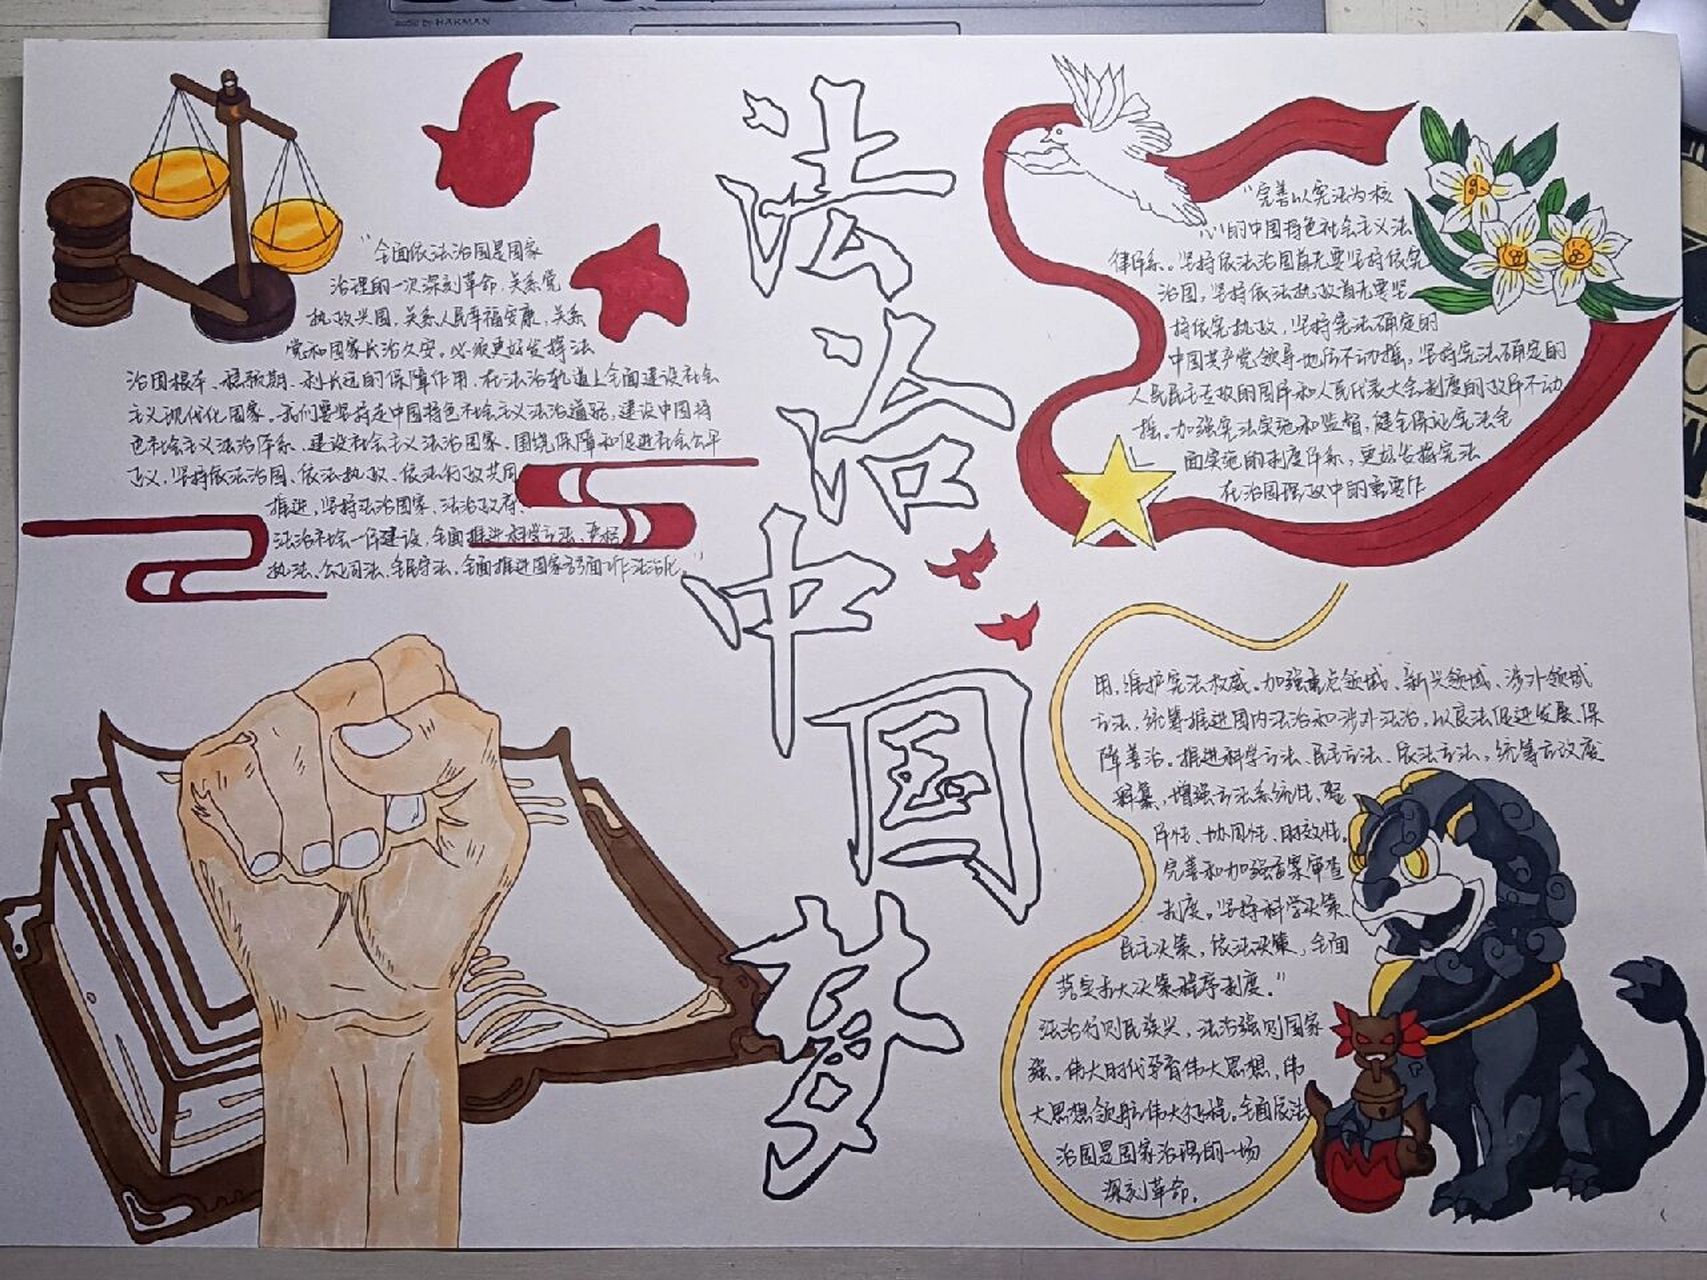 audio by HARMAN
法治中国梦
"全面依法治国是国家
治理的一次深刻革命,关系党
执政兴国,关系人民幸福安康,关系
党和国家长治久安。必须更好发挥法
治固根本、稳预期、利长远的保障作用,在法治轨道上全面建设社会
主义现代化国家。我们要坚持走中国特色社会主义法治道路,建设中国特
色社会主义法治体系、建设社会主义法治国家,围绕保障和促进社会公平
正义,坚持依法治国、依法执政、依法行政共同
推进,坚持法治国家、法治政府、
法治社会一体建设,全面推进科学立法、严格
执法、公正司法、全民守法,全面推进国家各方面工作法治化。"
"完善以宪法为核
心的中国特色社会主义法
律体系。坚持依法治国首先要坚持依宪
治国,坚持依法执政首先要坚
持依宪执政,坚持宪法确定的
中国共产党领导地位不动摇,坚持宪法确定的
人民民主专政的国体和人民代表大会制度的政体不动
摇。加强宪法实施和监督,健全保证宪法全
面实施的制度体系,更好发挥宪法
在治国理政中的重要作
用,维护宪法权威。加强重点领域、新兴领域、涉外领域
立法,统筹推进国内法治和涉外法治,以良法促进发展、保
障善治。推进科学立法、民主立法、依法立法,统筹立改废
释纂,增强立法系统性、整
体性、协同性、时效性。
完善和加强备案审查
制度。坚持科学决策、
民主决策、依法决策,全面
落实重大决策程序制度。"
法治行则民族兴,法治强则国家
强。伟大时代孕育伟大思想,伟
大思想领航伟大征程。全面依法
治国是国家治理的一场
深刻革命。